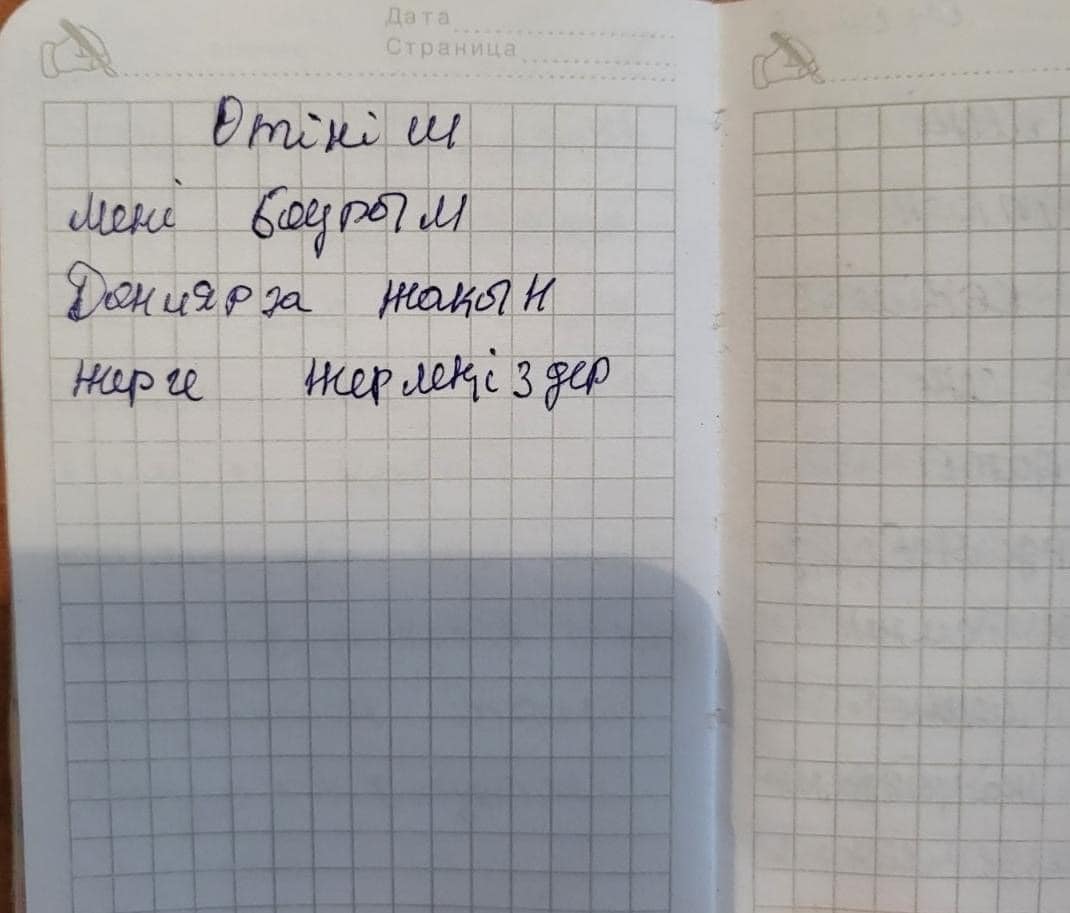 Дата
Страница
Отініш
мені бауырым
Даниярға жақын
жерге жерлеңіздер